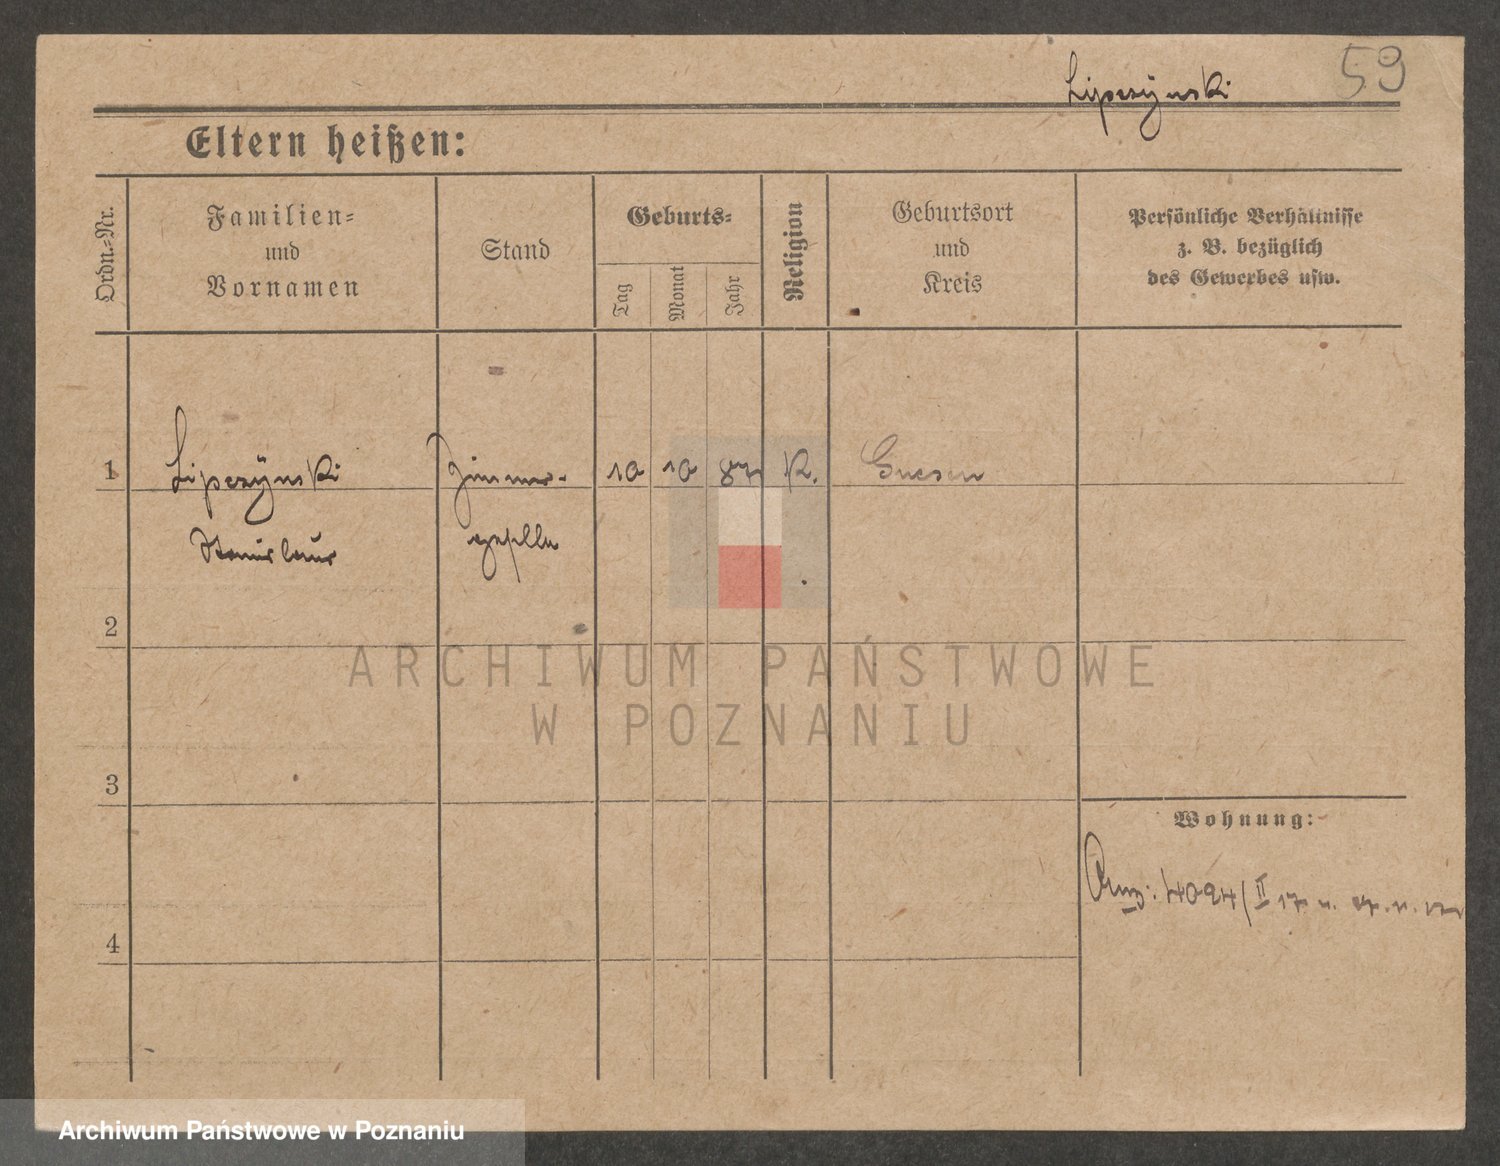 Lipczÿnski 59
Eltern heißen:
Ordn.=Nr.
Familien=
und
Vornamen
Stand
Geburts=
Tag
Monat
Jahr
Religion
Geburtsort
und
Kreis
Persönliche Verhältnisse
z. B. bezüglich
des Gewerbes usw.
1 Lipczÿnski Zimmer- 10 10 87 K. Gnesen
Stanislaus geselle
2
ARCHIWUM PAŃSTWOWE
W POZNANIU
3
Wohnung:
Anz: 4094/II 17
4
Archiwum Państwowe w Poznaniu